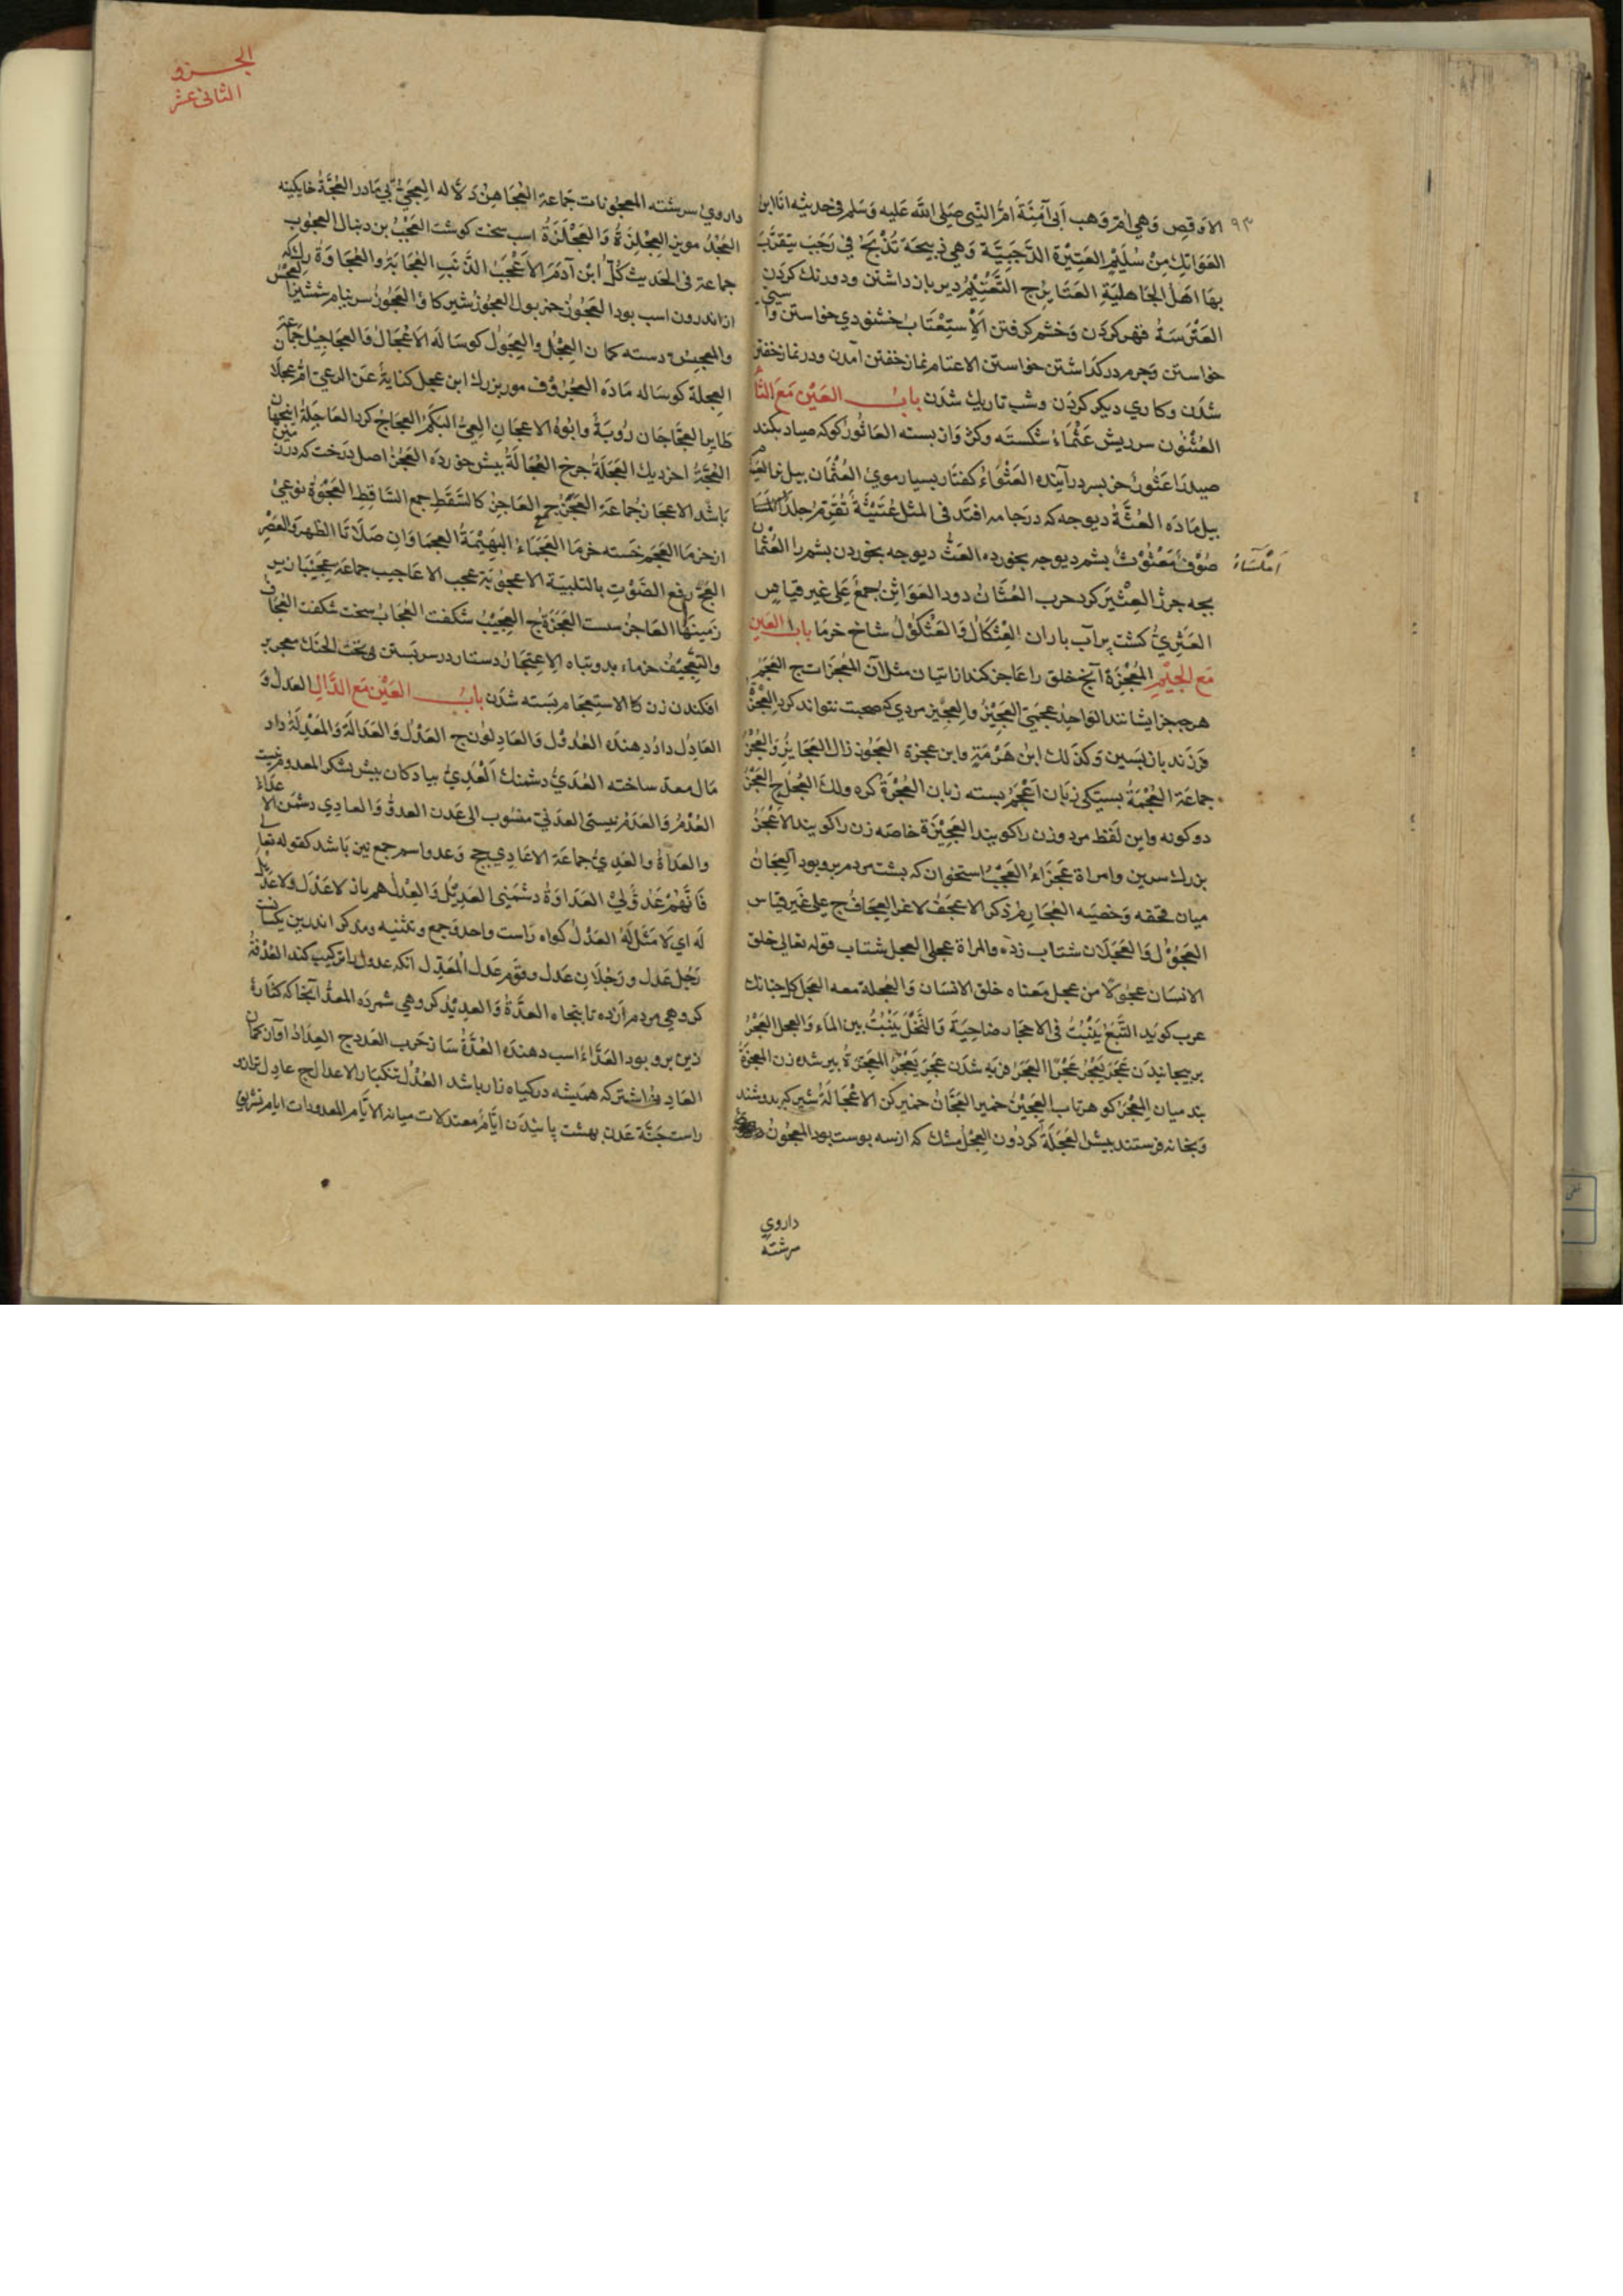 ٩٣
الاوقص وَهي اُمّ وَهب اَبی آمِنَةَ امُّ النَّبی صَلی اللّٰه عَلیه وَسَلم فی حَدیثه اَنَا ابنُ
العَوَاتِك مِنْ سُلَیْمٍ العَتِیْرَة الرَّجَبِیَّة وَهِی ذبیحَة تُذْبَحُ فِی رَجَبَ یتَقَرَّبُ
بهَا اَهْلُ الجَاهلیَةِ العَتَایِرُ ج التَّعْتِیْمُ دیر باز داشتن ودورنك کردَن
العَتْرَسَةُ قهر کردَن وَخشم کرفتن الاِسْتِعْتَابُ خشنودی خواستن وآ
خواستن وَجرم درکذاشتن خواستن الاعتام نماز خفتن آمدن ودر نماز خفتن
شدَن وکاری دیکر کردَن وشب تاریك شدَن بابُ العَیْن مَعَ الثَّا
العُثْنُون سر ریش عَثْمَاءُ شکستَه وکژ وَاز بسته العَاثُورُ کوکه صیاد بکند
صیدرَا عَثُورُ خر بسر درآینده العَثْوَاءُ کفتار بسیار موی العُثْمَان بیل نر
بیل مَادَه العُثَّةُ دیوجه که درجامه افتَد فی المثل عُثَیْثَةُ تُقَرِّمُ جِلْدًا
اَمْلَسَاءُ
صُوْفٌ مَعْثُوْثٌ بشم دیوجه بخورده العَثُّ دیوجه بخوردن بشم را العُثْمَان
بجه جرز العِثْیَر کرد حرب العُثَانُ دود العَوَاثِنُ جُمِعَ عَلی غیر قیاس
العَثَرِیُّ کشت برآب باران العِثْکَالُ وَالعُثْکُوْلُ شاخ خرمَا باب العَینِ
مَعَ الجِیْمِ المُعْجِزَة آنج خلق رَا عَاجز کند از اتیان مثل آن المُعْجِزَات ج العَجَمُ
هرجه جز ایشانند الوَاحِدُ عَجَمِیٌّ العَجِیْزُ والعِجِّیز مردی که صحبت نتواند کرد العِجْزَةُ
فرزند بازبسین وَکذَلك ابنُ هَرْمَةٍ وابن عجزة العَجُوز زال العَجَایزُ وَالعُجُزُ
جماعَة العُجْمَةُ بستکی زبَان اَعْجَمُ بسته زبان العُجْرَةُ کره وَلك العُجَرُ ج العَجُزُ
دو کونه واین لَفظ مرد وزن راکویند العَجِیْزَة خاصَه زن راکویند الاَعْجَزُ
بزرك سرین وامراة عَجزَاءُ العَجْبُ استخوان که بشت مردم بروبود العِجَانُ
میان مقعد وَخصیَه العُجَارِمُ ذکر الاَعجَفُ لاغر العِجَافُ ج علی غَیر قیاس
العَجُوْل وَالعَجْلَان شتاب زده والمراة عجلی العجل شتاب قوله تعالی خلق
الانسَان عجُوْلا من عجل مَعناه خلق الانسَان وَالعُجلة معه العَجل کل جنانك
عرب کویَد النَّبْعُ یَنْبُتُ فی الاحجَار ضاحِیَة وَالنَّخْلُ یَنْبُتُ بین الماء وَالعجل العَجْرُ
بر بیجانیدَن عَجَرَ یَعْجُرُ عَجْرًا العَجَرُ فربه شدَن عَجِرَ یَعْجَرُ المِعْجَزَةُ بیر شدن زن المِعْجَرَةُ
بند میان المِعْجَرُ کو هرتاب العَجِیْنُ خمیر العَجَّانُ خمیرکن الاعْجَالَةُ شیر که بدوشند
وَبخانه فرستند بیش العَجَلَةُ کردُون العِجْلُ مشك که از سه بوست بود المعجُونُ
داروی
سرشته
الجزو
الثانی عشر
داروی سرشته المعجونات جَماعة العُجَاهِنُ دلاله العَجِیُّ بی مَادر العُجَّةُ خایکینه
العُنْجُدُ مویز العِجْلِزَةُ وَالعَجْلَزَةُ اسب سخت کوشت العَجْبُ بن دنبال العجوب
جماعة فی الحَدیث کُلُّ ابْن آدَمَ الاَعْجَبَ الذَّنَبِ العُجَایَةُ والعُجَاوَةُ رك که
از اندرون اسب بود العَجُوز خر بول العجُوزُ شیر کاو العَجُوزُ سر نیام شمشیر
والعجس دسته کمان العِجْلُ والعِجَوْلُ کوسَاله الاَعْجَالُ وَالعجَاجِیْلُ جَمَاعة
العِجلة کوساله مَادَه العُجْرُوْف مور بزرك ابن عجل کنایةٌ عَن الرعی امُّ عجلا
طَایر العجَّاجَان رُوبَةُ وابُوهُ الاعجَان العِیُّ البَکَمُ العَجَاجُ کرد العَاجِلَةُ اینجهان
العُجَّةُ آخر دیك العَجَلَةُ جرخ العُجَالَةُ بیش خورده العَجُزُ اصل درخت که در زمین
بَاشد الاعجَازُ جُماعَة العَجَزُ جمع العَاجِزُ کالسَّقَطِ جمع السَّاقِطِ العَجْوَةُ نوعی
از خرمَا العَجَمُ خَسته خرمَا العَجْمَاءُ البَهِیْمَةُ العجماوَانِ صَلَاتَا الظهرِ وَالعَصْرِ
العَجُّ رفع الصَّوْتِ بالتلبیَة الاعجُوْبَة عجب الاعَاجیب جماعَة
زَمینها العَاجزُ سست العَجَزَةُ ج العَجِیْبُ شکفت العُجَابُ سخت شکفت العُجَاف
والتَّعْجِیْفُ خرماء بد وتباه الاِعْتِجَارُ دستار در سر بَستن بی تَحْت الحَنك معجر بر
افکندن زن کا الاستعجام بَسته شدَن بابُ العَیْن مَعَ الدَّالِ العدل وَ
العَادِل داد دِهندَه العُدُوْل وَالعَادِلُوْن ج العَدْل وَالعَدَالَة وَالمَعْدِلَةُ داد
مَال معدّ ساخته العُدَیُّ دشمنك العُدِیُّ بیادکان بیش لشکر المعدوم نیست
العُدْمُ وَالعَدَمُ نیستی العدَنی منسُوب الی عَدن العدوُّ وَالعادی دشمن الاعداءُ
والعدَاةُ والعِدی جماعَة الاعَادِی جج وَعدو اسم جمع نیز بَاشد کقوله تعَالی
فَاِنَّهُمْ عَدُوٌّ لِیْ العَدَاوَةُ دشمنی العَدِیْلُ وَالعِدْلُ هم باز لاعَدْلَ وَلا عَدِیْلَ
لَه ای لَا مَثَل لَهُ العَدْلُ کواه رَاست واحد وَجمع وتثنیه ومذکر اندرین یکسانست
رَجُل عَدل و رَجُلَان عَدل وقوم عَدل المُعَدِّل آنکه عدول را ترکیب کند العُدْفَةُ
کروهی مردم اَز ده تا بنجاه العِدَّةُ وَالعدِیْدُ کروهی شمرده المعدُّ آنجا که کنارهٔ
زین بروبود العَدَّاءُ اسب دهنده العُدَّةُ سَاز حَرب العُدد ج العِدَادُ آواز کمَان
العَادِ اشتر که همَیشه درکیاه زار باشد العُدُل تنکبَار الاعدال ج عادِل ترازو
راست جَنَّة عَدن بهشت پاییدَن ایَّامُ معتدلات میانه الایَّام المعدودات ایام تشریق